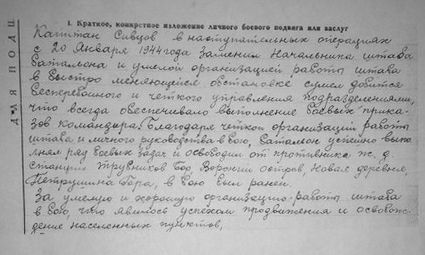 I. Краткое, конкретное изложение личного боевого подвига или заслуг
Капитан Сивцов в наступательных операциях
с 20 января 1944 года заменил начальника штаба
батальона и умелой организацией работы штаба
в быстро меняющейся обстановке сумел добиться
бесперебойного и чёткого управления подразделениями,
что всегда обеспечивало выполнение боевых прика-
зов командира. Благодаря чёткой организации работы
штаба и личного руководства в бою, батальон успешно выпо
лнял ряд боевых задач и освободил от противника ж. д.
станцию Трубников Бор, остров, Новая деревня,
Петрушина Гора, в бою был ранен.
За умелую и хорошую организацию работы штаба
в бою, что явилось успехом продвижения и освобож-
дение населенных пунктов,